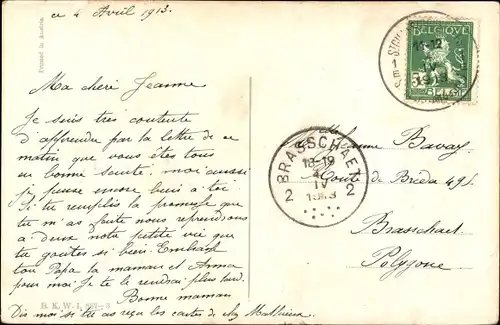 ce 4 Avril 1913.
Printed in Austria
Ma cheri Jeanne
Je suis très contente
d'apprendre par la lettre de ce
matin que vous êtes tous
en bonne santé. moi aussi
je pense encore bien à toi
si tu remplis la promesse que
tu m'as faite nous reprendrons
à Deux notre petite vie que
tu goutes si bien. Embrasse
ton Papa ta maman et Anna
pour moi Je te le rendrai plus tard.
Bonne maman
B. K. W. I.
Dis moi si tu as reçu les cartes de Mathieu
BELGIQUE
11-12
1913
5
BELGIË
BRASSCHAET
18-19
IV
1913
2 2
Jeanne Bavay
Route de Breda 495
Brasschaet
Polygone